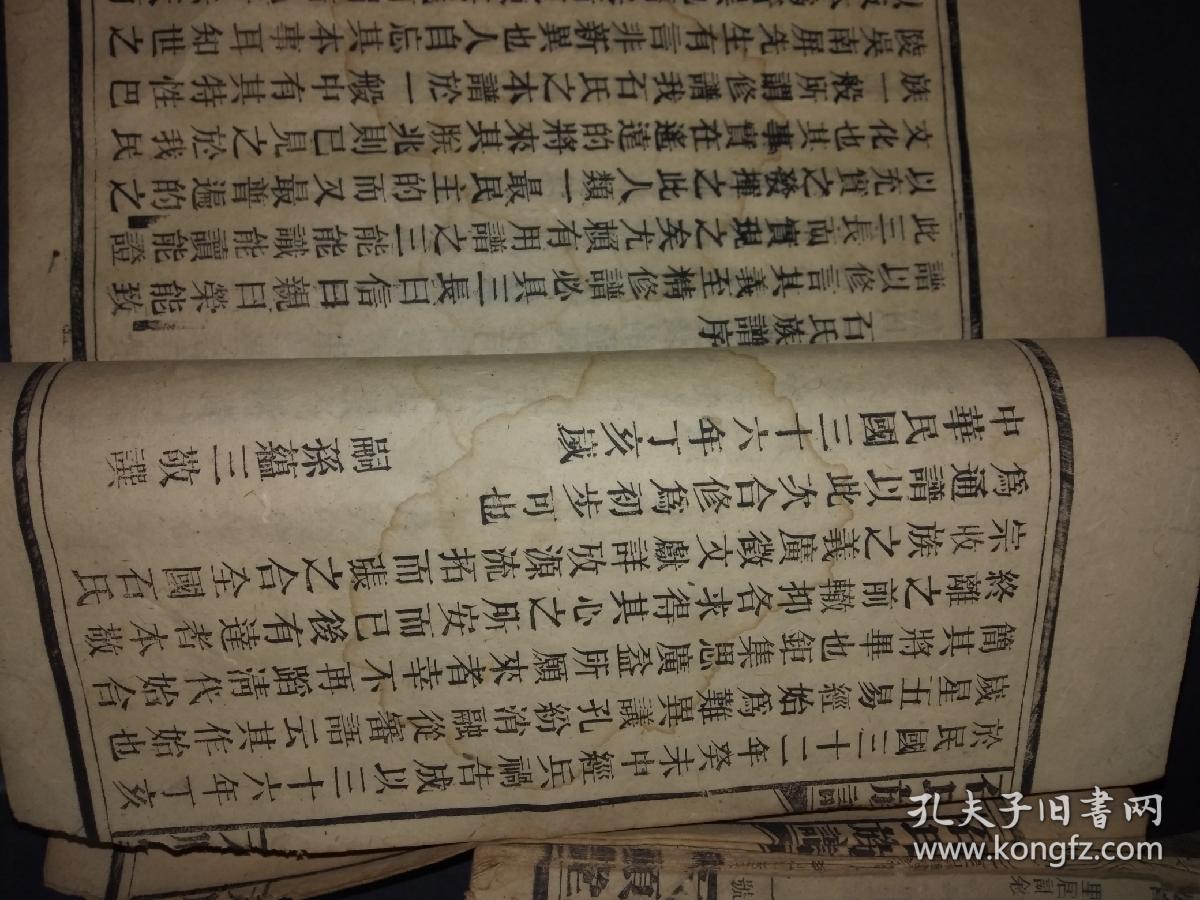 於民國三十二年癸未中經兵禍告成以三十六年丁亥
歲星五易經始為難異議孔紛消融從審語云其作始也
簡其將畢也鉅集思廣益所願來者幸不再蹈清代始合
終離之前轍抑各求得其心之所安而已後有達者本敬
宗收族之義廣徵文獻詳攷源流拓而張之合全國石氏
為通譜以此次合修為初步可也
中華民國三十六年丁亥歲 嗣孫蘊三敬譔
石氏族譜序
譜以修言其義至精修譜必具三長曰信曰親曰榮能致
此三長而實現之矣尤賴有用譜之三能能識能讀能證
以充實之發揮之此人類一最民主的而又最普遍的之
文化也其事實在遙遠的將來其朕兆則已見之於我民
族一般所謂修譜我石氏之本譜於一般中有其特性巴
陵吳南屏先生有言非新異也人自忘其本事耳知世之
孔夫子旧书网
www.kongfz.com